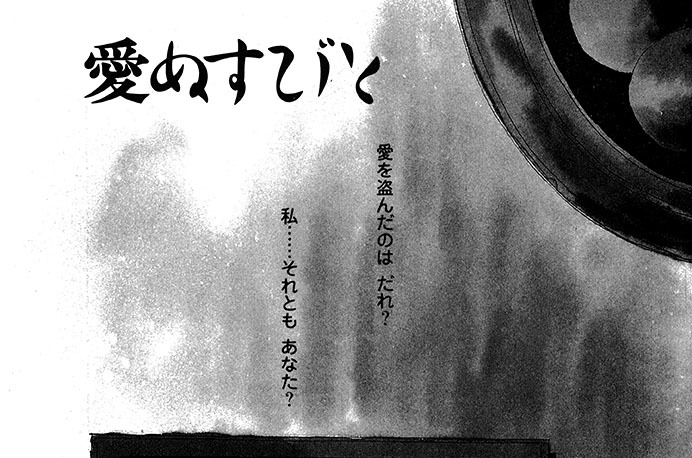 愛ぬすびと
愛を盗んだのは だれ?
私……それとも あなた?